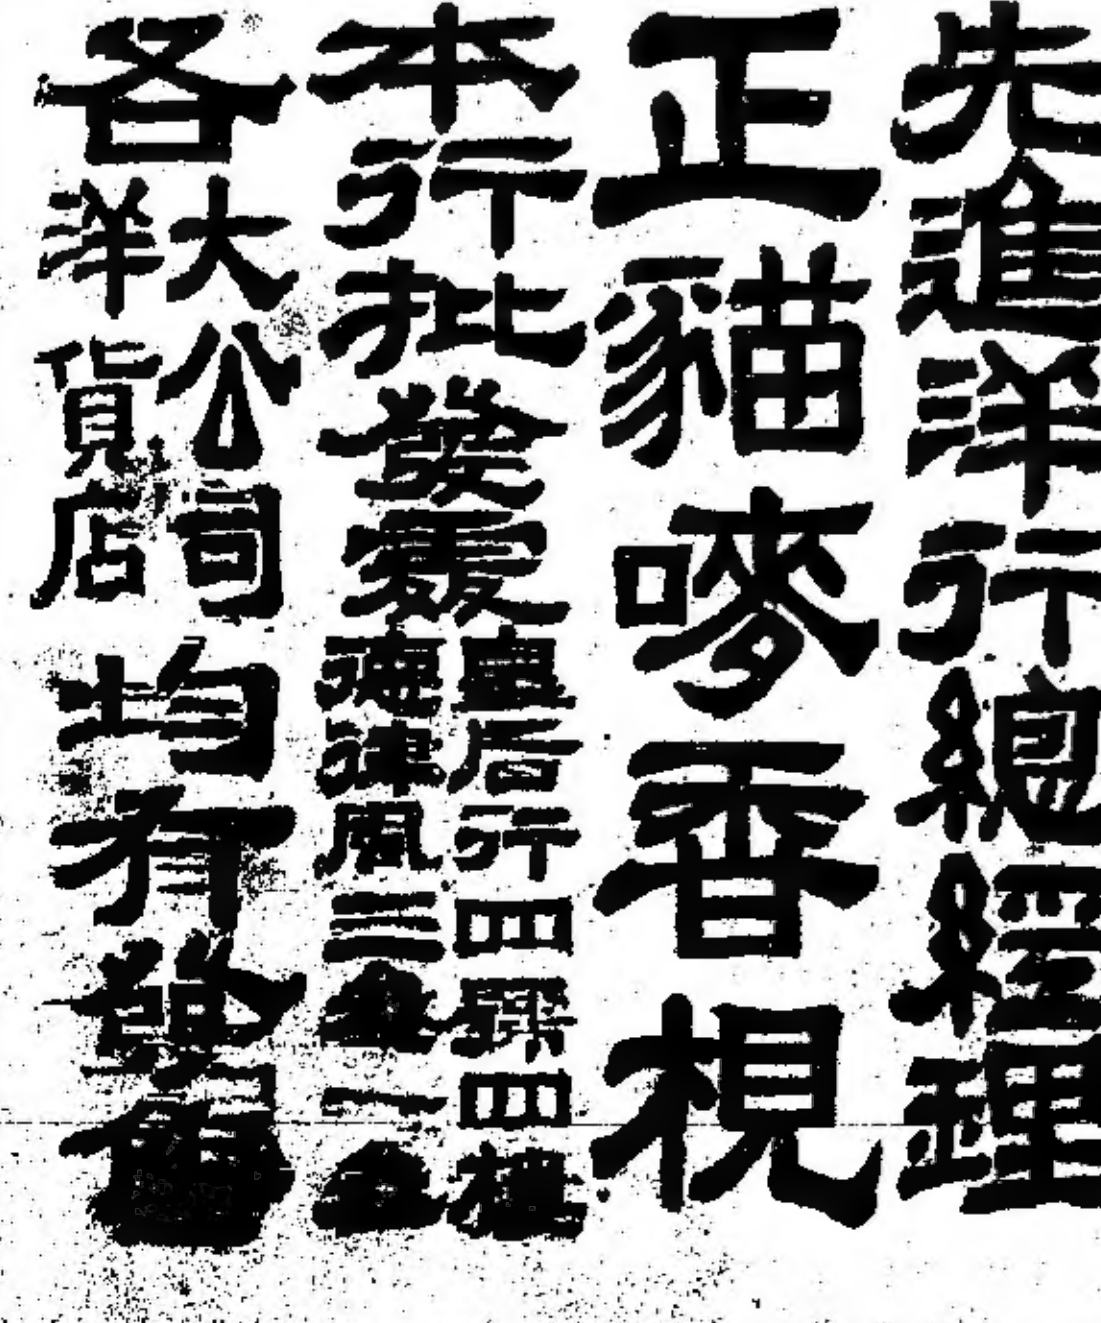 先進洋行總經理
正貓嘜香梘
本行批發處
皇后行四號四樓
德律風三 一
各
大公司
洋貨店
均有發售